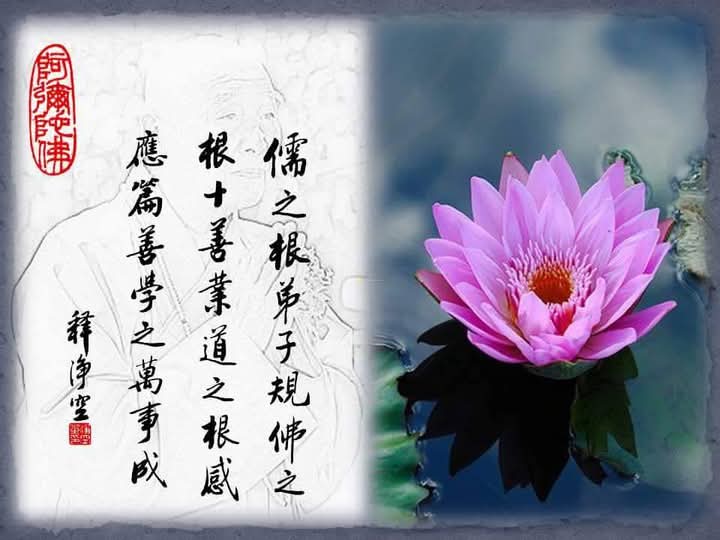 阿彌陀佛
儒之根弟子規佛之
根十善業道之根感
應篇善學之萬事成
釋淨空